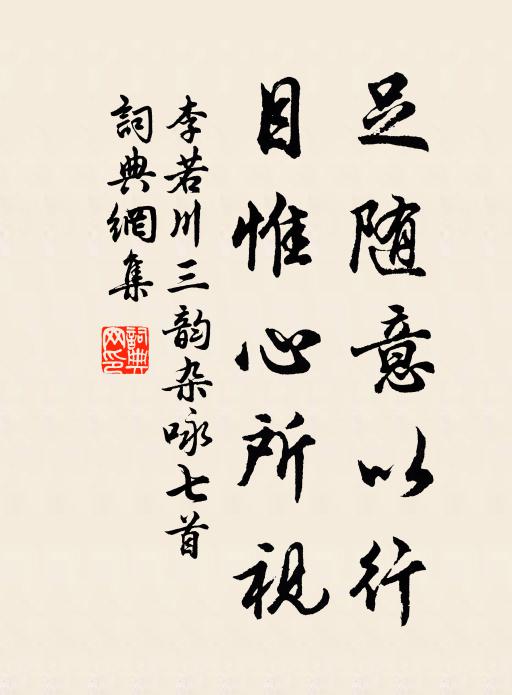 足随意以行
目惟心所視
李若川三韵杂咏七首
詞典網集
詞典
网印